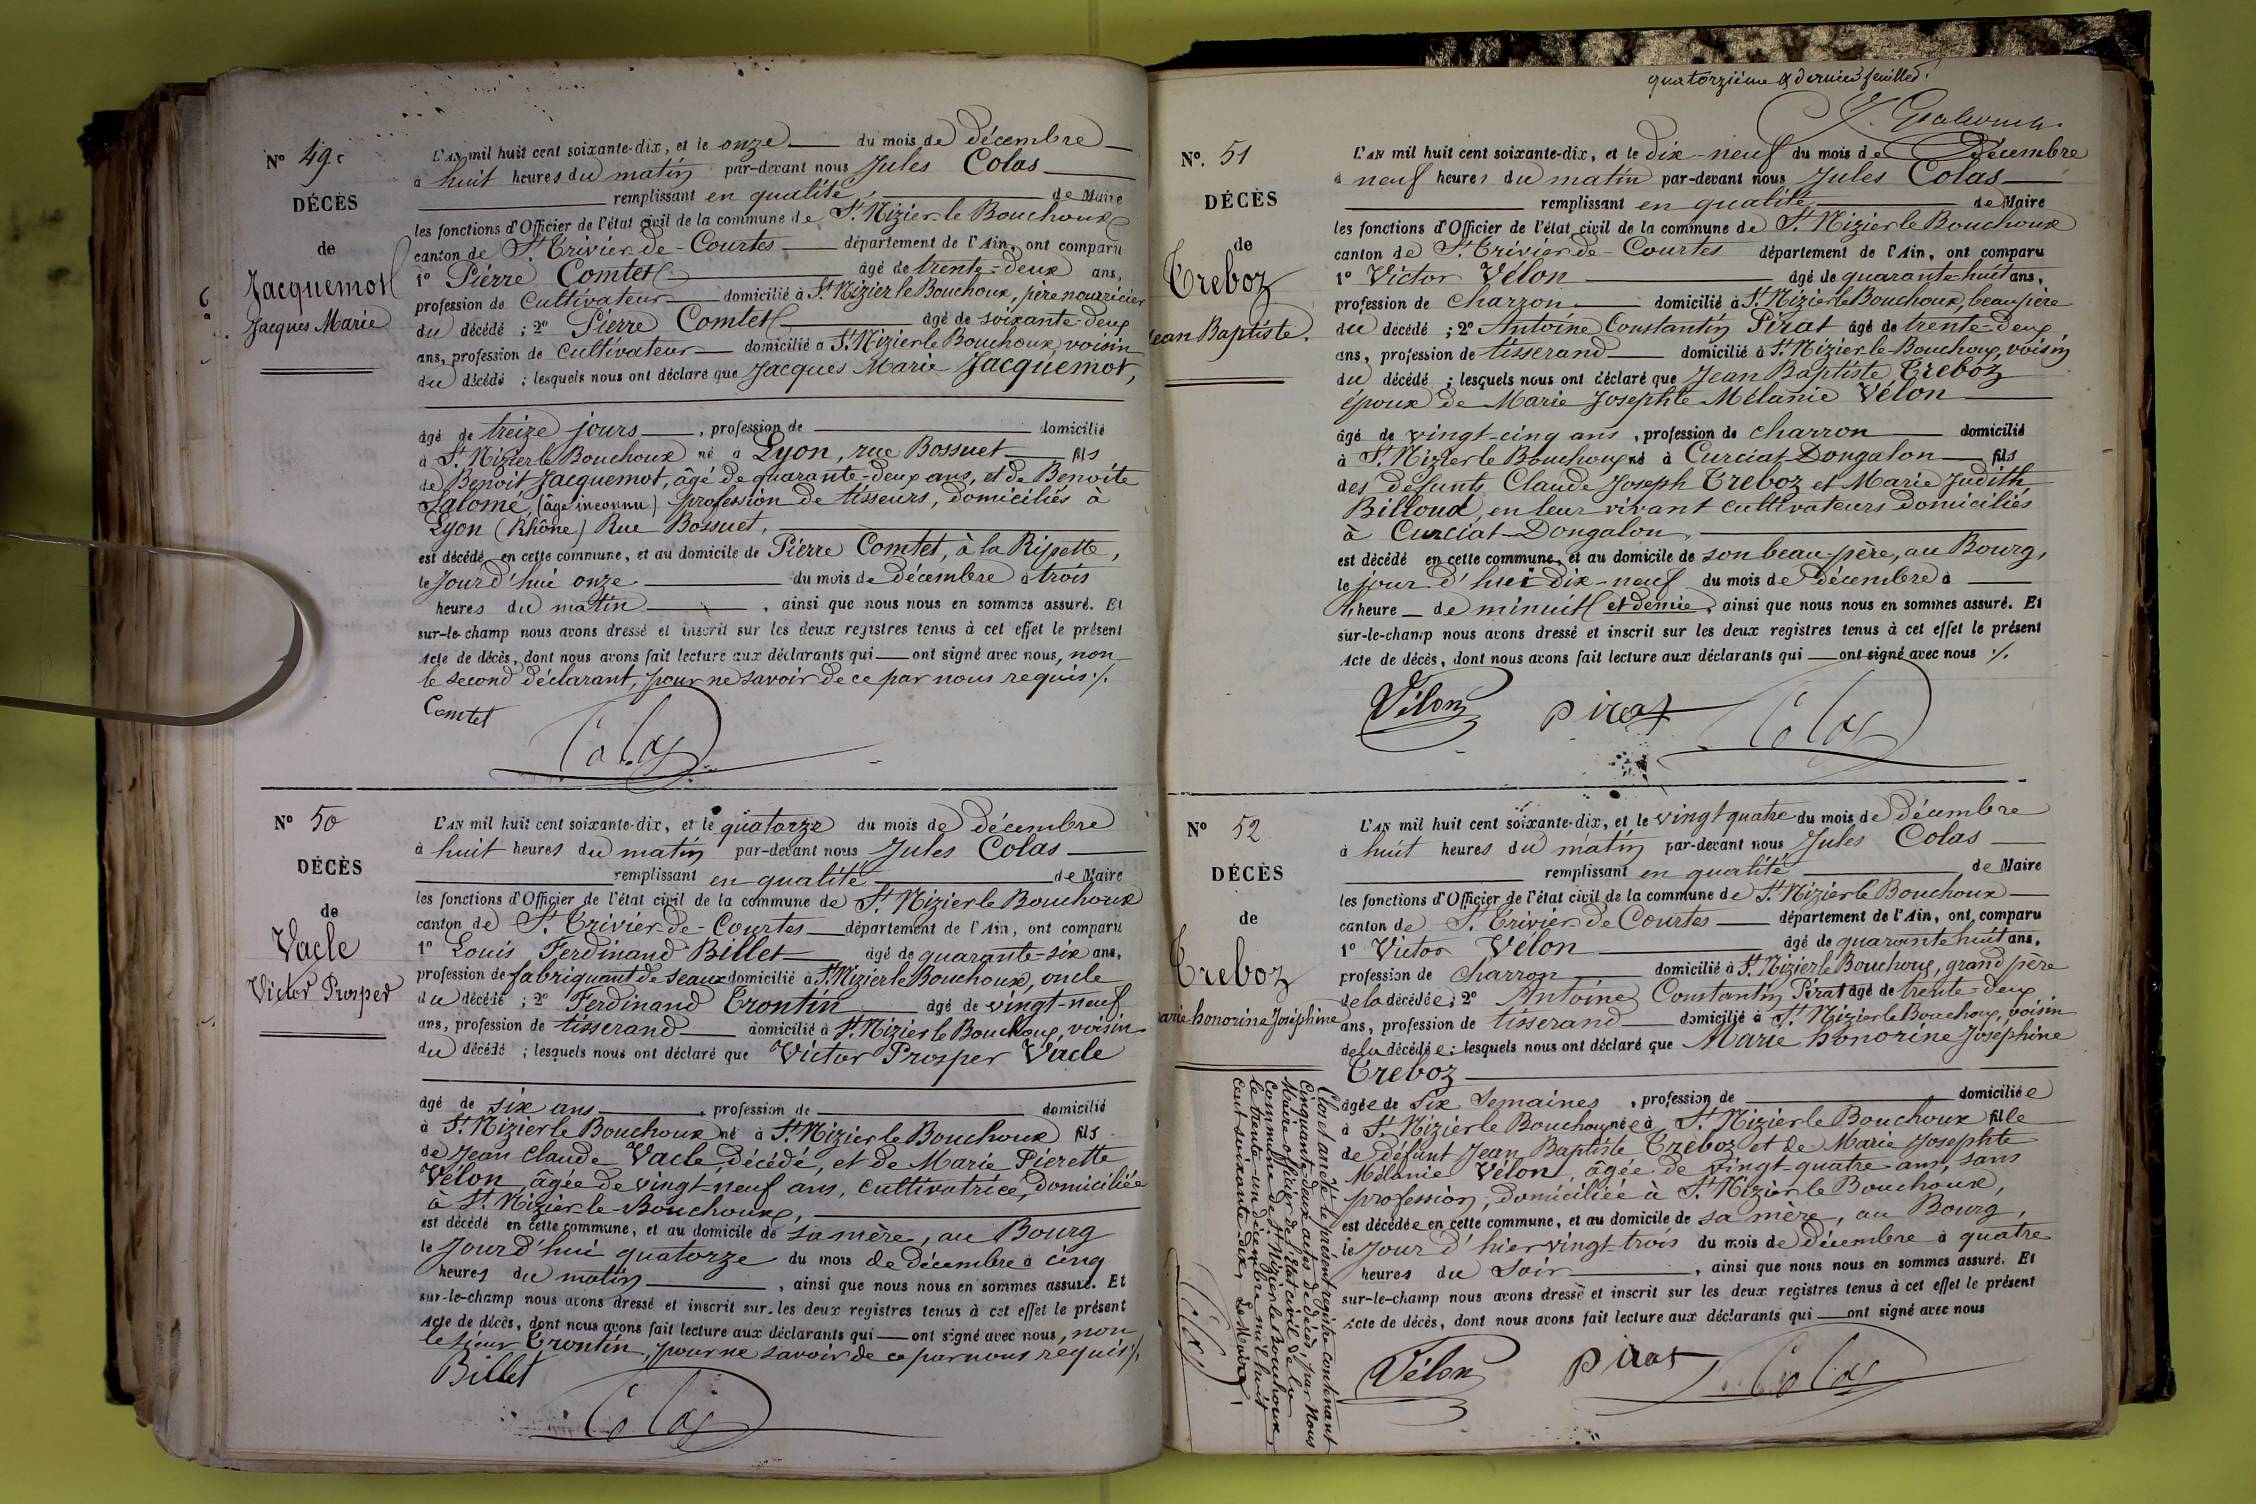 N° 49
DÉCÈS
de
Jacquemot
Jacques Marie
L'AN mil huit cent soixante-dix, et le onze du mois de décembre
à huit heures du matin par-devant nous Jules Colas
remplissant en qualité de Maire
les fonctions d'Officier de l'état civil de la commune de St. Nizier le Bouchoux
canton de St. Trivier-de-Courtes département de l'Ain, ont comparu
1° Pierre Comtet âgé de trente-deux ans,
profession de cultivateur domicilié à St. Nizier le Bouchoux, père nourricier
du décédé ; 2° Pierre Comtet âgé de soixante-deux
ans, profession de cultivateur domicilié à St. Nizier le Bouchoux, voisin
du décédé ; lesquels nous ont déclaré que Jacques Marie Jacquemot,
âgé de treize jours, profession de domicilié
à St. Nizier le Bouchoux né à Lyon, rue Bossuet fils
de Benoit Jacquemot, âgé de quarante-deux ans, et de Benoite
Salomé, (âge inconnu) profession de tisseurs, domiciliés à
Lyon (Rhône) Rue Bossuet,
est décédé en cette commune, et au domicile de Pierre Comtet, à la Ripette,
le jour d'hui onze du mois de décembre à trois
heures du matin, ainsi que nous nous en sommes assuré. Et
sur-le-champ nous avons dressé et inscrit sur les deux registres tenus à cet effet le présent
Acte de décès, dont nous avons fait lecture aux déclarants qui ont signé avec nous, non
le second déclarant, pour ne savoir de ce par nous requis ./.
Comtet
Colas
N° 50
DÉCÈS
de
Vacle
Victor Prosper
L'AN mil huit cent soixante-dix, et le quatorze du mois de décembre
à huit heures du matin par-devant nous Jules Colas
remplissant en qualité de Maire
les fonctions d'Officier de l'état civil de la commune de St. Nizier le Bouchoux
canton de St. Trivier-de-Courtes département de l'Ain, ont comparu
1° Louis Ferdinand Billet âgé de quarante-six ans,
profession de fabriquant de seaux domicilié à St. Nizier le Bouchoux, oncle
du décédé ; 2° Ferdinand Trontin âgé de vingt-neuf
ans, profession de tisserand domicilié à St. Nizier le Bouchoux, voisin
du décédé ; lesquels nous ont déclaré que Victor Prosper Vacle
âgé de six ans, profession de domicilié
à St. Nizier le Bouchoux né à St. Nizier le Bouchoux fils
de Jean Claude Vacle, décédé, et de Marie Pierette
Vélon, âgée de vingt-neuf ans, cultivatrice, domiciliée
à St. Nizier-le-Bouchoux,
est décédé en cette commune, et au domicile de sa mère, au Bourg
le jour d'hui quatorze du mois de décembre à cinq
heures du matin, ainsi que nous nous en sommes assuré. Et
sur-le-champ nous avons dressé et inscrit sur les deux registres tenus à cet effet le présent
Acte de décès, dont nous avons fait lecture aux déclarants qui ont signé avec nous, non
le sieur Trontin, pour ne savoir de ce par nous requis ./.
Billet
Colas
quatorzième & dernier feuillet.
N°. 51
DÉCÈS
de
Treboz
Jean Baptiste.
L'AN mil huit cent soixante-dix, et le dix-neuf du mois de Décembre
à neuf heures du matin par-devant nous Jules Colas
remplissant en qualité de Maire
les fonctions d'Officier de l'état civil de la commune de St. Nizier le Bouchoux
canton de St. Trivier-de-Courtes département de l'Ain, ont comparu
1° Victor Vélon âgé de quarante-huit ans,
profession de charron domicilié à St. Nizier le Bouchoux, beau père
du décédé ; 2° Antoine Constantin Pirat âgé de trente-deux
ans, profession de tisserand domicilié à St. Nizier le Bouchoux, voisin
du décédé ; lesquels nous ont déclaré que Jean Baptiste Treboz
époux de Marie Josephte Mélanie Vélon
âgé de vingt-cinq ans, profession de charron domicilié
à St. Nizier le Bouchoux né à Curciat-Dongalon fils
des défunts Claude Joseph Treboz et Marie Judith
Billoud, en leur vivant cultivateurs domiciliés
à Curciat-Dongalon,
est décédé en cette commune, et au domicile de son beau-père, au Bourg,
le jour d'hui dix-neuf du mois de décembre à
heure de minuit et demie, ainsi que nous nous en sommes assuré. Et
sur-le-champ nous avons dressé et inscrit sur les deux registres tenus à cet effet le présent
Acte de décès, dont nous avons fait lecture aux déclarants qui ont signé avec nous ./.
Vélon Pirat Colas
N° 52
DÉCÈS
de
Treboz
arie honorine Joséphine
L'AN mil huit cent soixante-dix, et le vingt quatre du mois de décembre
à huit heures du matin par-devant nous Jules Colas
remplissant en qualité de Maire
les fonctions d'Officier de l'état civil de la commune de St. Nizier le Bouchoux
canton de St. Trivier-de-Courtes département de l'Ain, ont comparu
1° Victor Vélon âgé de quarante huit ans,
profession de charron domicilié à St. Nizier le Bouchoux, grand père
de la décédée ; 2° Antoine Constantin Pirat âgé de trente-deux
ans, profession de tisserand domicilié à St. Nizier le Bouchoux, voisin
de la décédée ; lesquels nous ont déclaré que Marie honorine Joséphine
Treboz
âgée de six semaines, profession de domiciliée
à St. Nizier le Bouchoux née à St. Nizier le Bouchoux fille
de défunt Jean Baptiste Treboz et de Marie Josephte
Mélanie Vélon, âgée de vingt-quatre ans, sans
profession, domiciliée à St. Nizier le Bouchoux,
est décédée en cette commune, et au domicile de sa mère, au Bourg,
le jour d'hier vingt-trois du mois de décembre à quatre
heures du soir, ainsi que nous nous en sommes assuré. Et
sur-le-champ nous avons dressé et inscrit sur les deux registres tenus à cet effet le présent
Acte de décès, dont nous avons fait lecture aux déclarants qui ont signé avec nous
Vélon Pirat Colas
Clos et arrêté le présent registre contenant
cinquante-deux actes de décès, par Nous
Maire officier de l'état civil de la
commune de St. Nizier le Bouchoux,
le trente-un décembre mil huit
cent soixante-dix, Le Maire,
Colas